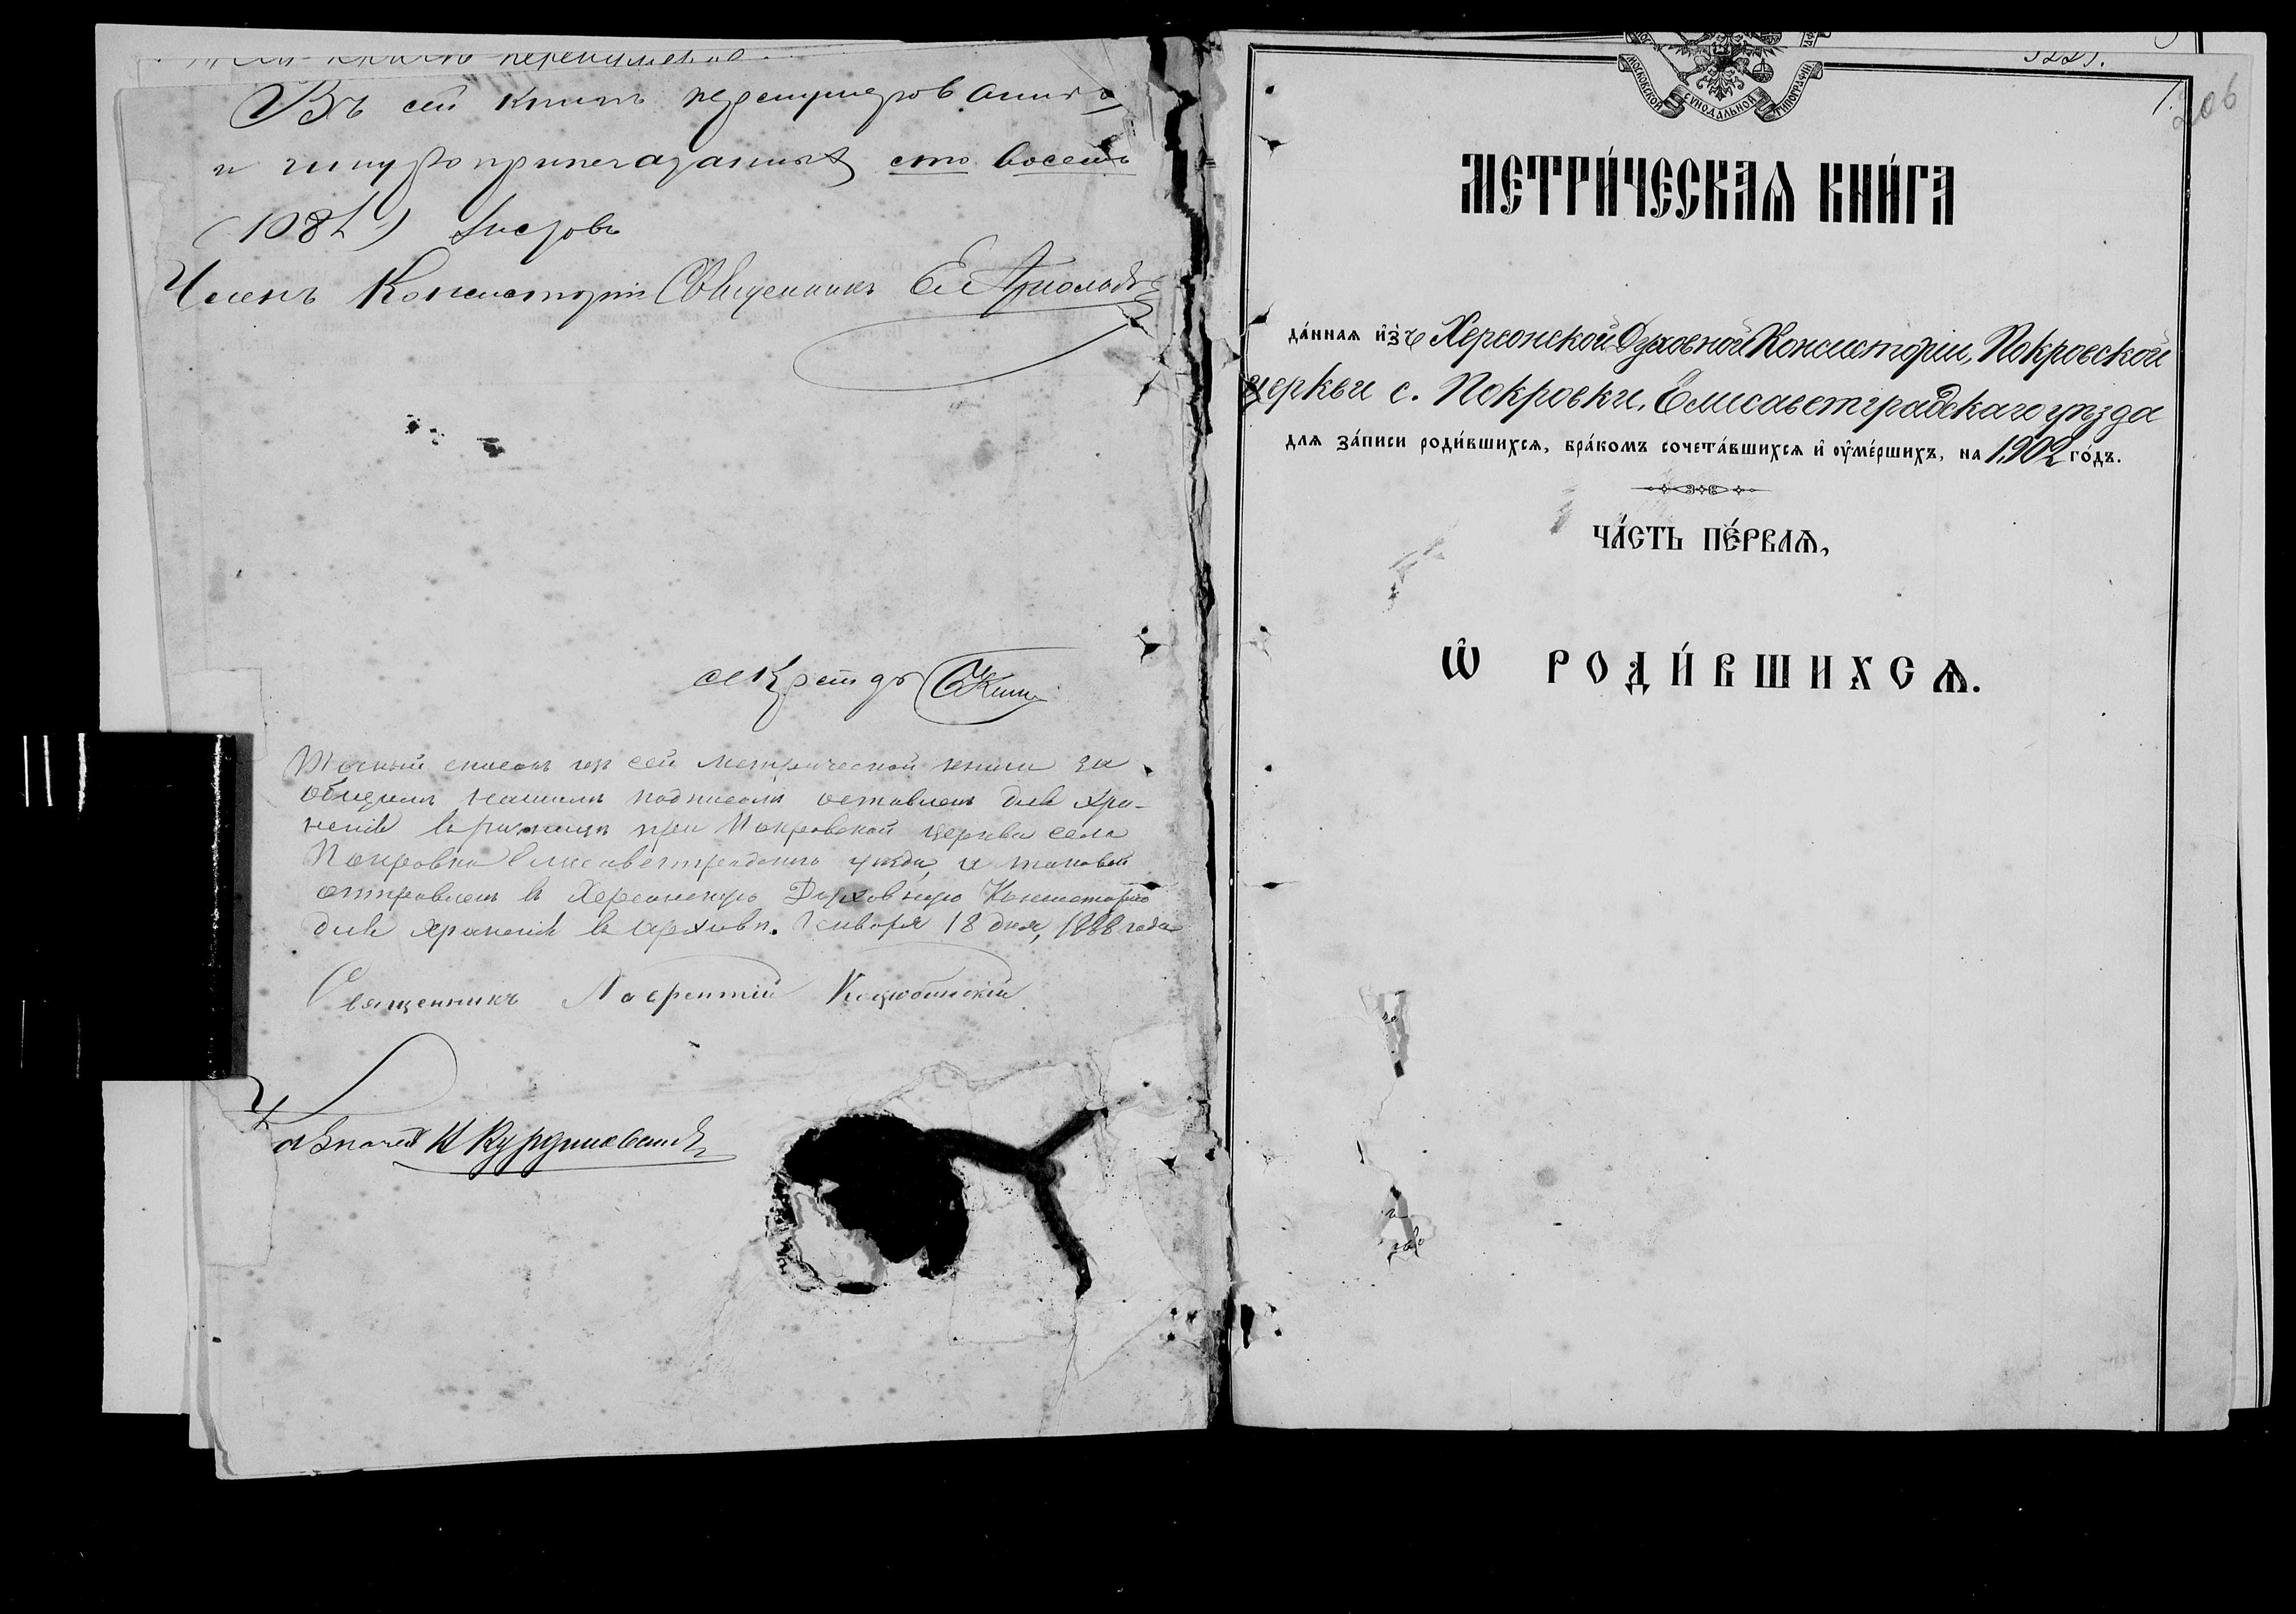 книгѣ
Въ сей книгѣ перенумерованныхъ
и шнуроприпечатанныхъ сто восемь
(108 л) листовъ
Членъ Консисторіи Священникъ Е. Арнольдъ
Секретарь
Точный списокъ изъ сей метрической книги за
общимъ нашимъ подписомъ оставленъ для хра-
ненія въ ризницѣ при Покровской церкви села
Покровки Елисаветградскаго уѣзда, и таковой
отправленъ въ Херсонскую Духовную Консисторію
для храненія въ архивѣ. Января 18 дня, 1888 года
Священникъ Лаврентій Коцюбинскій
Казначей И
3221.
МОСКОВСКОЙ СѴНОДАЛЬНОЙ ТИПОГРАФІИ
1.
206
МЕТРИ́ЧЕСКАѦ КНИ́ГА
да́ннаѧ и҆зъ Херсонской Духовной Консисторіи, Покровской
церкви с. Покровки, Елисаветградскаго уѣзда
длѧ за́писи роди́вшихсѧ, бра́комъ сочета́вшихсѧ и҆ оу҆ме́ршихъ, на 1902 го́дъ.
ЧА́СТЬ ПЕ́РВАѦ,
Ѡ҆ РОДИ́ВШИХСѦ.